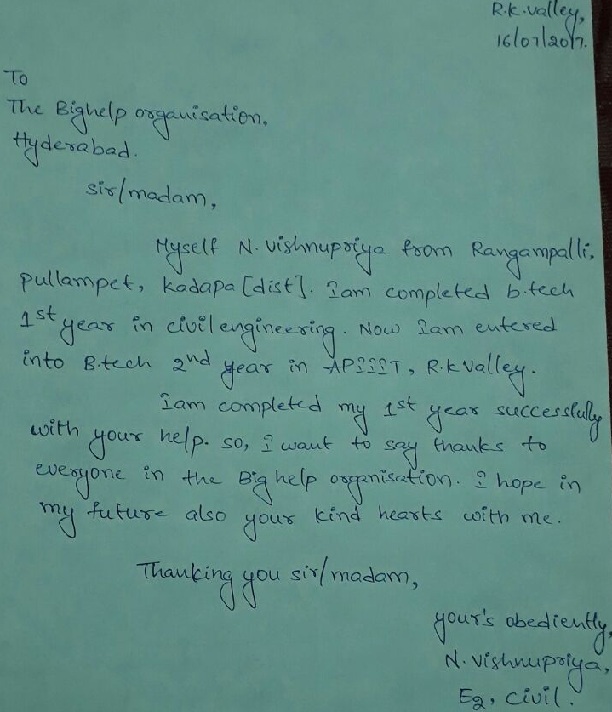 R.K.valley,
16/07/2017.
To
The Bighelp organisation.
Hyderabad.
sir/madam,
Myself N. vishnupriya from Rangampalli,
pullampet, kadapa [dist]. Iam completed b.tech
1st year in civil engineering. Now Iam entered
into B.tech 2nd year in APIIIT, R.K valley.
Iam completed my 1st year successfully
with your help. so, i want to say thanks to
everyone in the Big help organisation. i hope in
my future also your kind hearts with me.
Thanking you sir/madam,
your's obediently,
N. vishnupriya,
E2, civil.